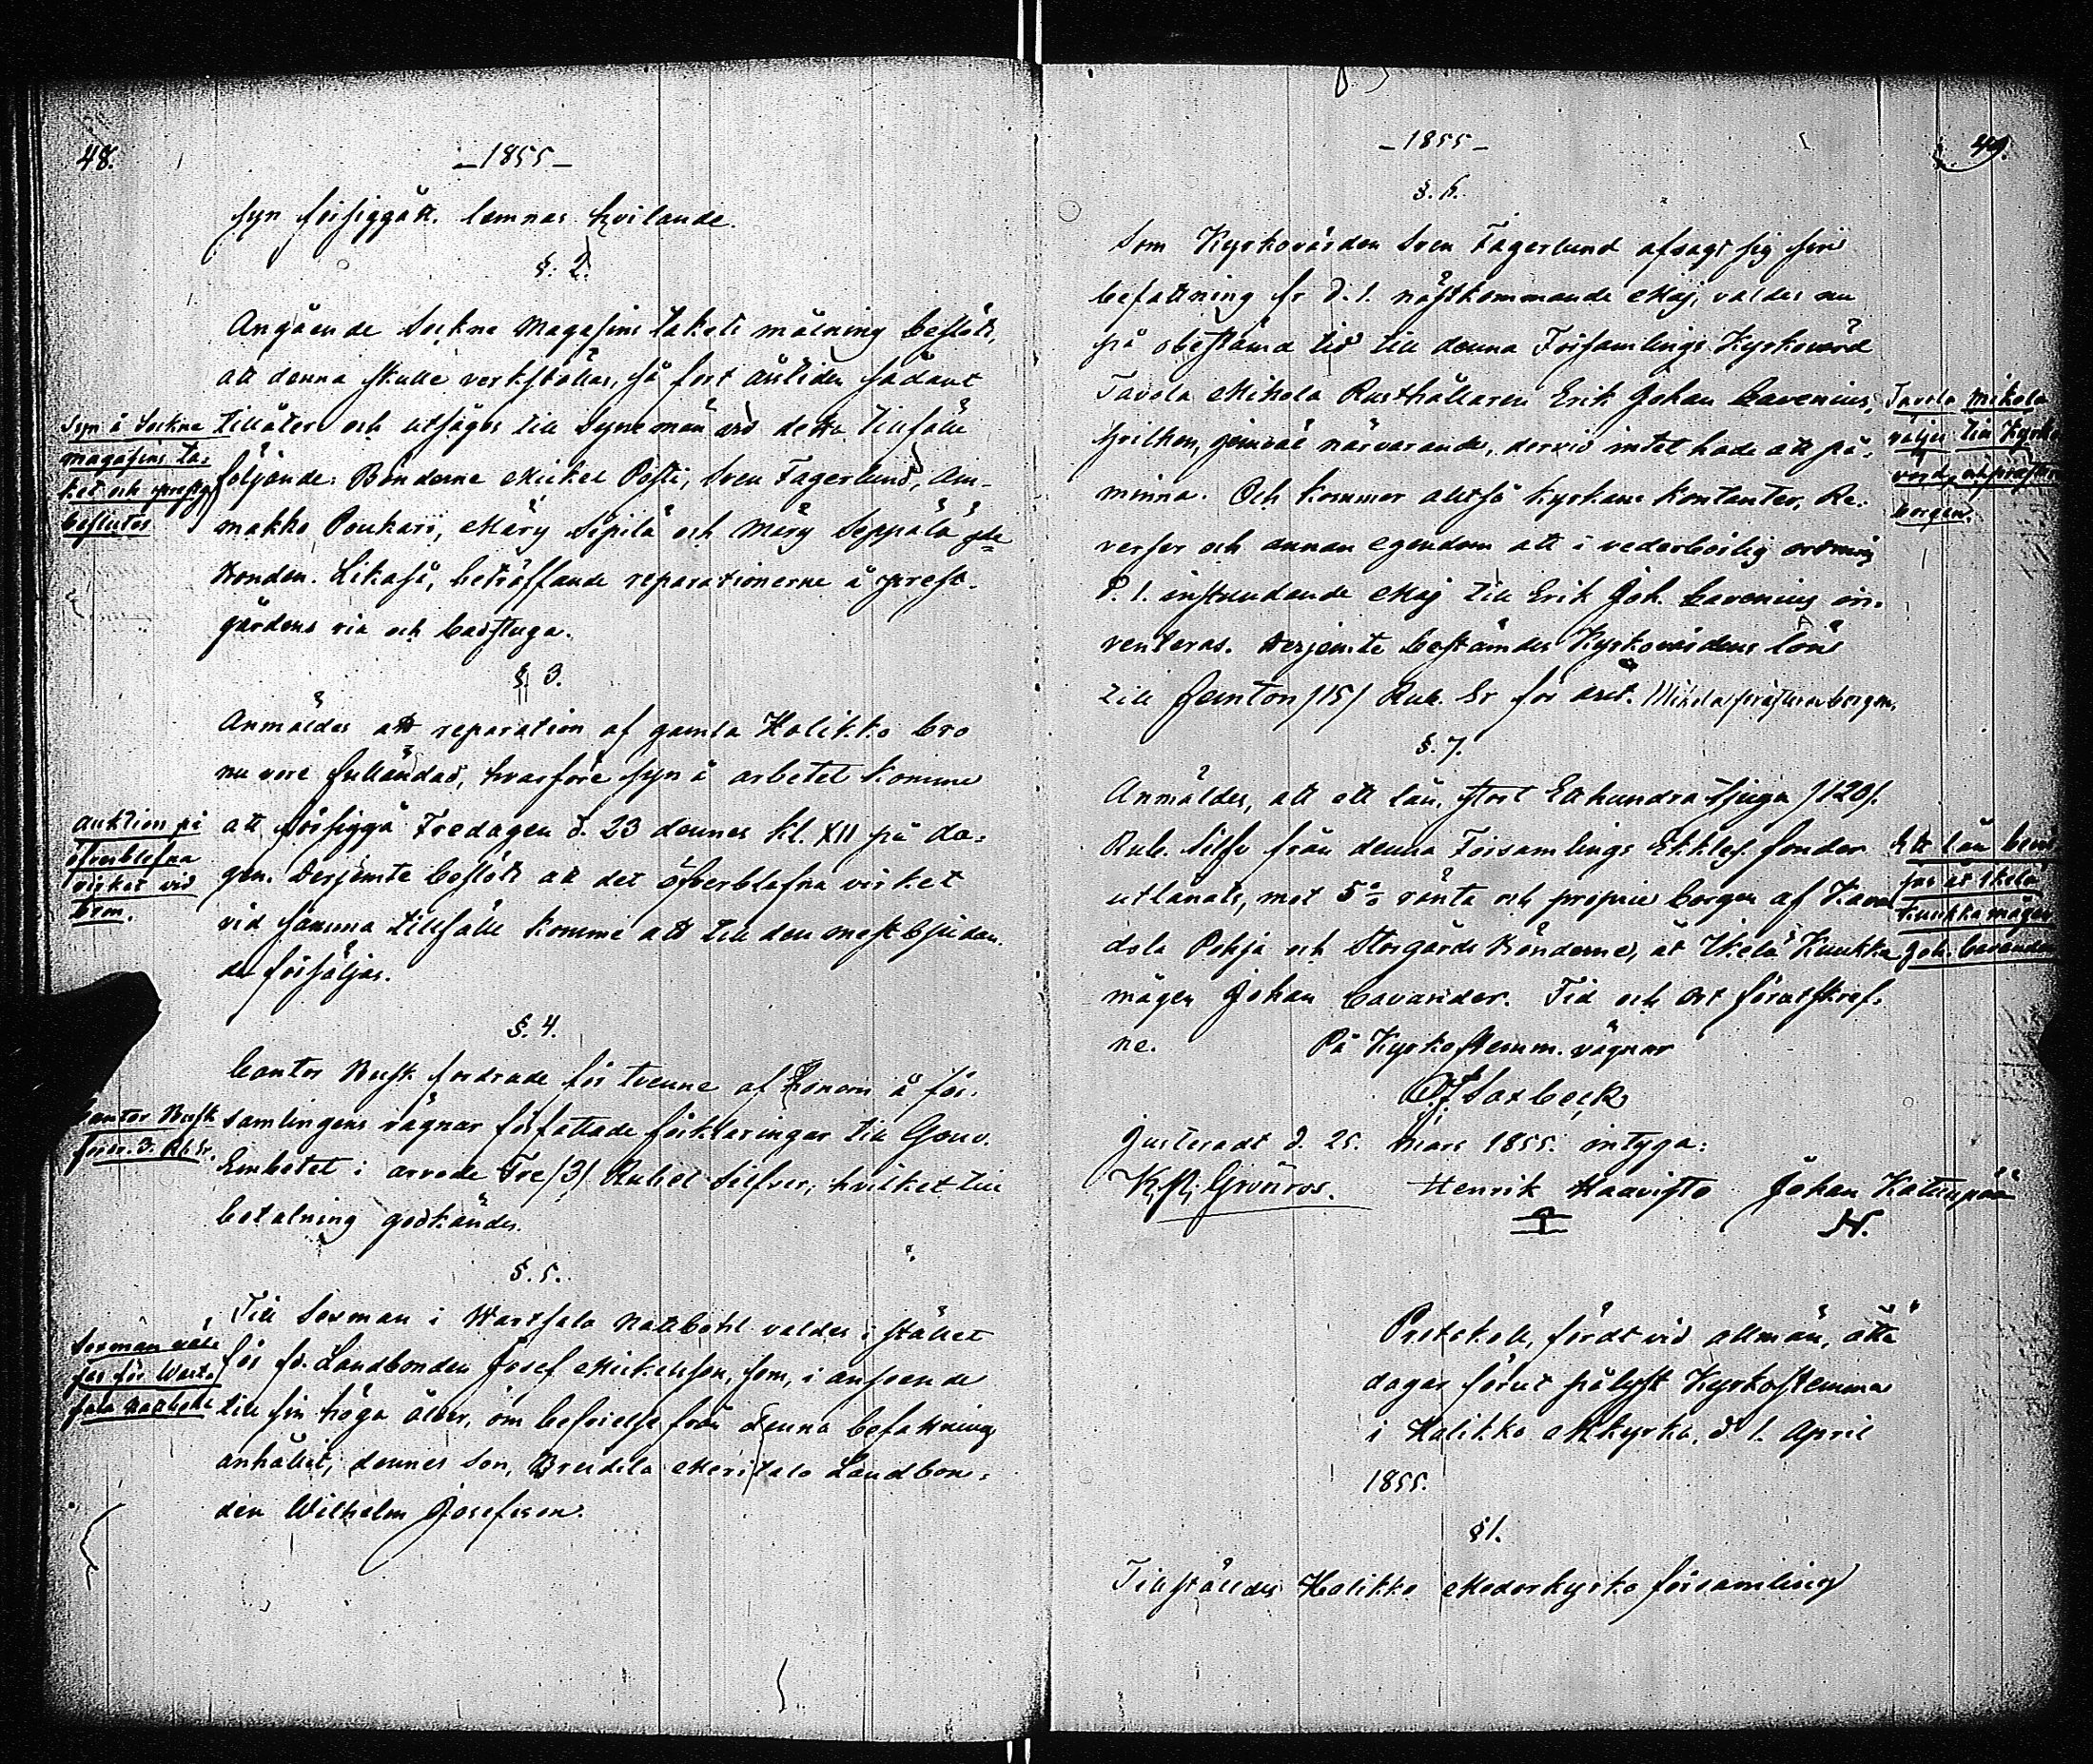 48.
-1855-
syn försiggått, lemnas hvilande.
§. 2.
Angående Sockne Magasins takets målning beslöts,
att denna skulle verkställas, så fort årstiden sådant
tillåter och utsågos till Synemän vid detta tillfälle
följande: Bönderne Mickel Posti, Sven Fagerlund, Am-
makko Ponkari, Märy Sipilä och Märy Seppälä
bonden. Likaså, beträffande reparationerne å prest-
gårdens ria och badstuga.
Syn å Sockne
magasins ta-
ket och prestg.
beslutes
§. 3.
Anmäldes att reparation af gamla Halikko bro
nu vore fulländad, hvarföre syn å arbetet komme
att försiggå Fredagen d. 23 dennes kl. XII på da-
gen. Derjemte beslöts att det öfverblefna virket
vid samma tillfälle komme att till den mestbjudan-
de försäljas.
Auktion på
öfverblefna
virket vid
bron.
§. 4.
Cantor Rusk fordrade för tvenne af honom å för-
samlingens vägnar författade förklaringar till Gouv.
Embetet i arvode Tre /3/ Rubel Silfver, hvilket till
betalning godkändes.
Cantor Rusk
§. 5.
Till Sexman i Wartsala Nattbohl valdes i stället
för fd. Landbonden Josef Mickelsson, som, i anseende
till sin höga ålder, om befrielse från denna befattning
anhållit, dennes son, Bredila Meritalo Landbon-
den Wilhelm Josefsson.
Sexman väl-
jes för Wart-
sala Nattbohl
49.
-1855-
§. 6.
Som Kyrkovärden Sven Fagerlund afsagt sig sin
befattning fr. d. 1. nästkommande Maj, valdes nu
på obestämd tid till denna Församlings Kyrkovärd
Tavola Mikola Rusthållaren Erik Johan Cavenius,
hvilken, jemväl närvarande, dervid intet hade att på-
minna. Och kommer altså kyrkans kontanter, Re-
verser och annan egendom att i vederbörlig ordning
d. 1. instundande Maj till Erik Joh. Cavenius in-
venteras. Derjemte bestämdes Kyrkovärdens lön
till femton /15/ Rub. Sr för året. Mikola presterar borgen.
Tavola Mikola
väljes till Kyrko-
värd, och prestera
borgen.
§. 7.
Anmäldes, att ett lån, stort Etthundra tjugu /120/.
Rub. Silfv från denna Församlings Ekkles. fonder
utlånats, mot 5% ränta och proprie borgen af Kaven-
dola Pohja och Storgårds Bönderne, åt Ikelä Kuukka
mågen Johan Cavander. Tid och Ort förutskref-
ne.
Ett lån bevil-
jas åt Ikelä
Kuukka mågen
Joh. Cavander
På Kyrkostemm. vägnar
Saxbeck
Justeradt d. 25. Mars 1855. intyga:
K. Fr. Grönros. Henrik Haavisto Johan Katunpää
Protokoll, fördt vid allmän, åtta
dagar förut pålyst Kyrkostemma
i Halikko Mkyrka, d 1. April
1855.
§ 1.
Tillställdes Halikko Moderkyrko församling